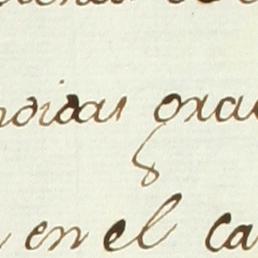 ndidas grac
en el ca